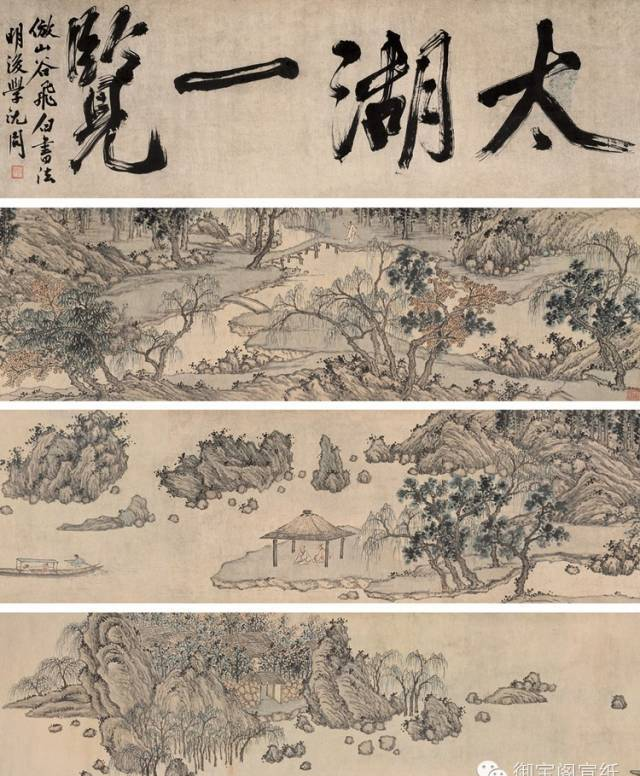 太湖一覽
倣山谷飛白書法
明後學沈周
御宝阁宣纸